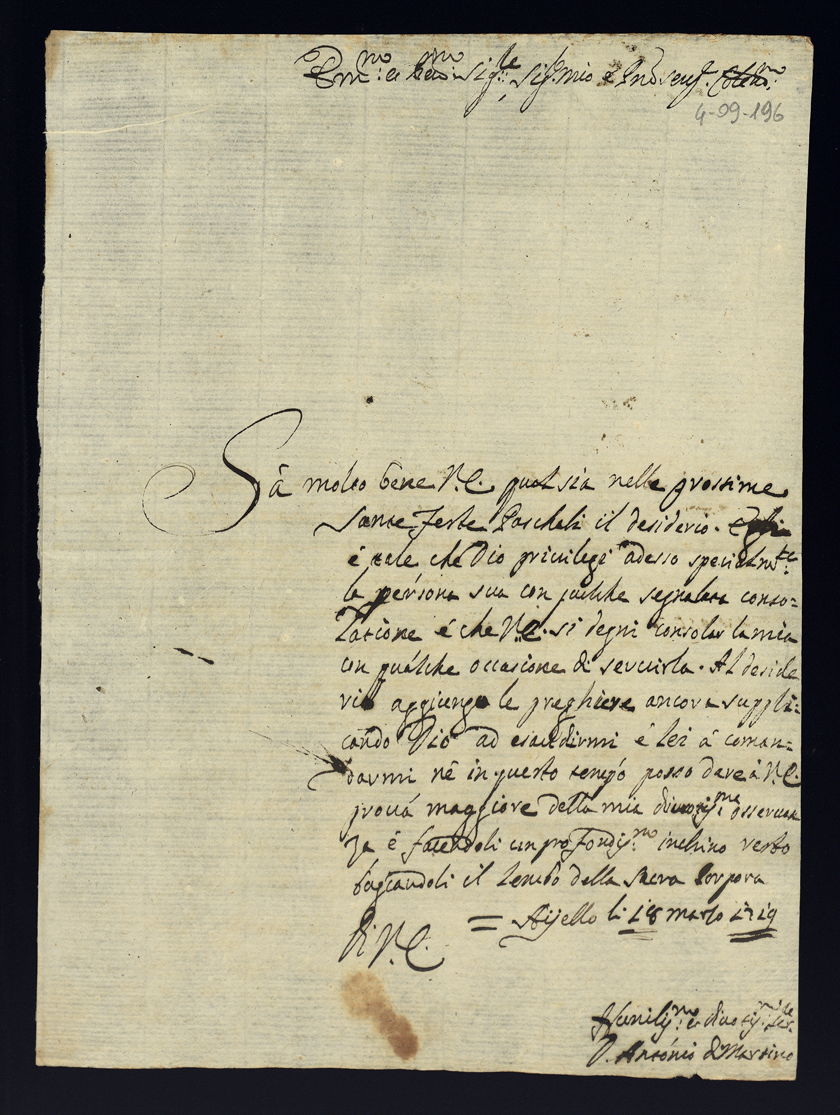 Em.mo e Rev.mo Sig.re Sig.r mio e Prone sempre Col.mo
4-09-196
Sà molto bene V.E. qual sia nelle prossime
Sante Feste Paschali il desiderio.
é tale che Dio privilegi adesso specialm.te
la persona sua con qualche segnalata conso=
latione é che V.E. si degni consolar la mia
con qualche occasione di servirla. Al deside
rio aggiungo le preghiere ancora suppli=
cando Dio ad esaudirmi é lei á coman=
darmi nè in questo tempo posso dare á V.E.
prová maggiore della mia divotis.ma osservan
za é facendoli un profondis.mo inchino resto
bagiandoli il lembo della sacra Porpora
Di V.E. = Aijello li 18 marzo 1719
Humilis.mo e divotis.mo ser.
D. António de Martino